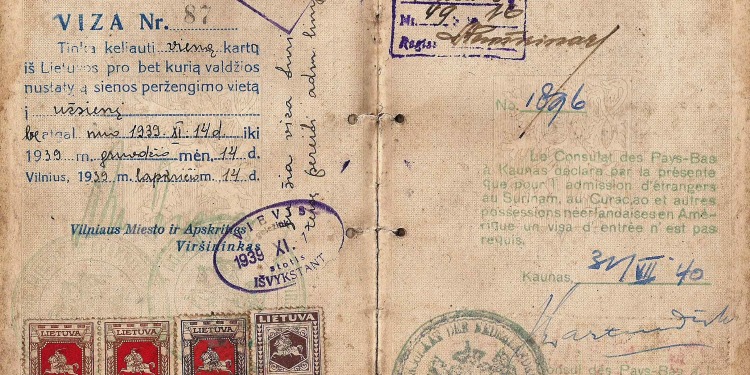 VIZA Nr. 87
Tinka keliauti vieną kartą
iš Lietuvos pro bet kurią valdžios
nustatytą sienos peržengimo vietą
į užsienį
be atgal. nuo 1939. XI. 14 d. iki
1939 m. gruodžio mėn. 14 d.
Vilnius, 1939 m. lapkričio m. 14 d.
Vilniaus Miesto ir Apskrities
Viršininkas
VIEVIS
1939 XI. 1
stotis
IŠVYKSTANT
LIETUVA
LIETUVA
LIETUVA
LIETUVA
Nr. 49
Regis.
No. 1896
Le Consulat des Pays-Bas
à Kaunas déclare par la présente
que pour l'admission d'étrangers
au Surinam, au Curaçao et autres
possessions néerlandaises en Amé-
rique un visa d'entrée n'est pas
requis.
Kaunas, 31 VII 40
DER NEDERLANDEN
Consul des Pays-Bas